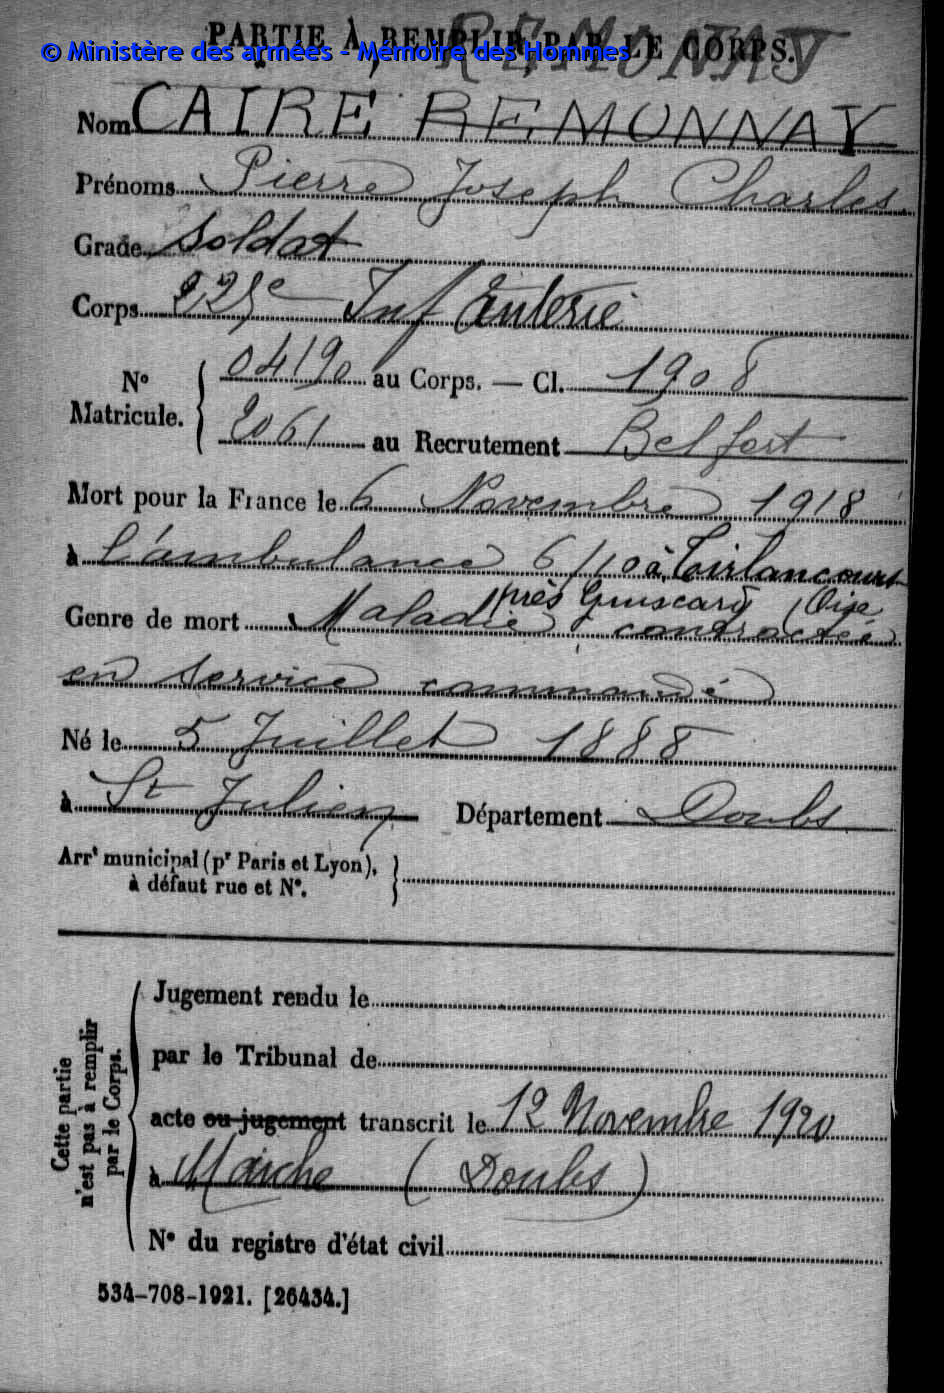 PARTIE À REMPLIR PAR LE CORPS.
REMONNAY
© Ministère des armées - Mémoire des Hommes
Nom CAIRE REMONNAY
Prénoms Pierre Joseph Charles
Grade Soldat
Corps Infanterie
N° Matricule. 04190 au Corps. — Cl. 1908
2061 au Recrutement Belfort
Mort pour la France le 6 Novembre 1918
à l'ambulance 6/10 à Tirlancourt
près Guiscard (Oise
Genre de mort Maladie contractée
en service commandé
Né le 5 Juillet 1888
à St Julien Département Doubs
Arrt municipal (pr Paris et Lyon),
à défaut rue et N°.
Cette partie
n'est pas à remplir
par le Corps.
Jugement rendu le
par le Tribunal de
acte ou jugement transcrit le 12 Novembre 1920
à Maiche (Doubs)
N° du registre d'état civil
534-708-1921. [26434.]